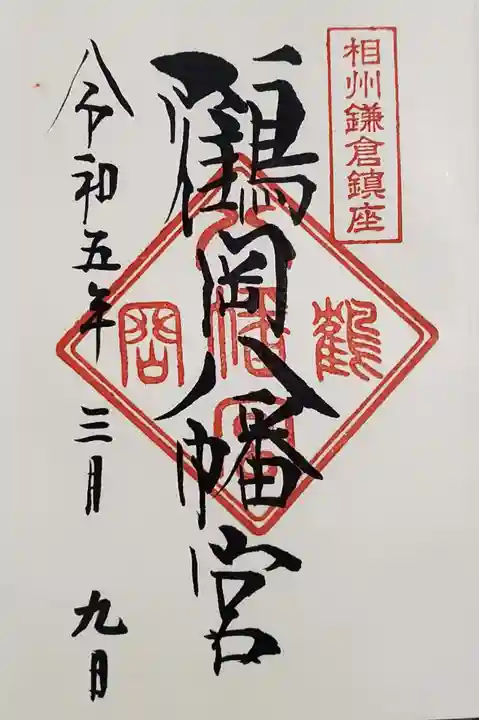 相州鎌倉鎮座
鶴岡八幡宮
鶴
岡
令和五年三月九日